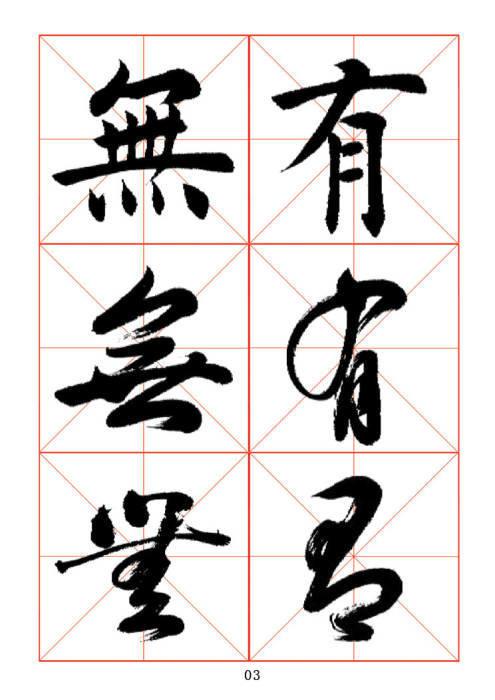 有
有
有
無
無
無
03